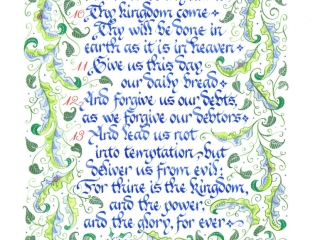 10 Thy kingdom come
Thy will be done in
earth as it is in heaven
11 Give us this day
our daily bread
12 And forgive us our debts,
as we forgive our debtors
13 And lead us not
into temptation but
deliver us from evil:
For thine is the kingdom,
and the power,
and the glory, for ever